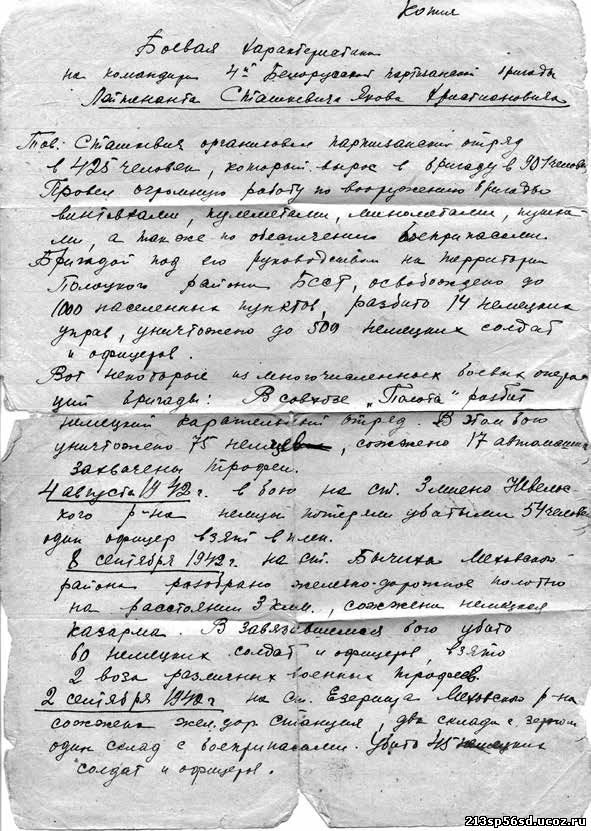 Копия
Боевая характеристика
на командира 4ой Белорусской партизанской бригады
Лейтенанта Сташкевича Якова Христиановича
Тов. Сташкевич организовал партизанский отряд
в 425 человек, который вырос в бригаду в 901 человек.
Провел огромную работу по вооружению бригады
винтовками, пулеметами, минометами, пушка-
ми, а также по обеспечению боеприпасами.
Бригадой под его руководством на территории
Полоцкого района БССР, освобождено до
1000 населенных пунктов, разбито 14 немецких
управ, уничтожено до 500 немецких солдат
и офицеров.
Вот некоторые из многочисленных боевых опера-
ций бригады: В совхозе „Полота" разбит
немецкий карательный отряд. В этом бою
уничтожено 75 немцев, сожжено 17 автомашин,
захвачены трофеи.
4 августа 1942 г. в бою на ст. Невельс-
кого р-на немцы потеряли убитыми 54 человек
один офицер взят в плен.
8 сентября 1942 г. на ст. Бычиха Меховского
района разобрано железно-дорожное полотно
на расстоянии 3 клм., сожжена немецкая
казарма. В завязавшемся бою убито
60 немецких солдат и офицеров, взято
2 воза различных военных трофеев.
2 сентября 1942 г на ст. Езерища Меховского р-на
сожжена жел.дор станция, два склада с зерном
один склад с боеприпасами. Убито 45 немецких
солдат и офицеров.
213sp56sd.ucoz.ru